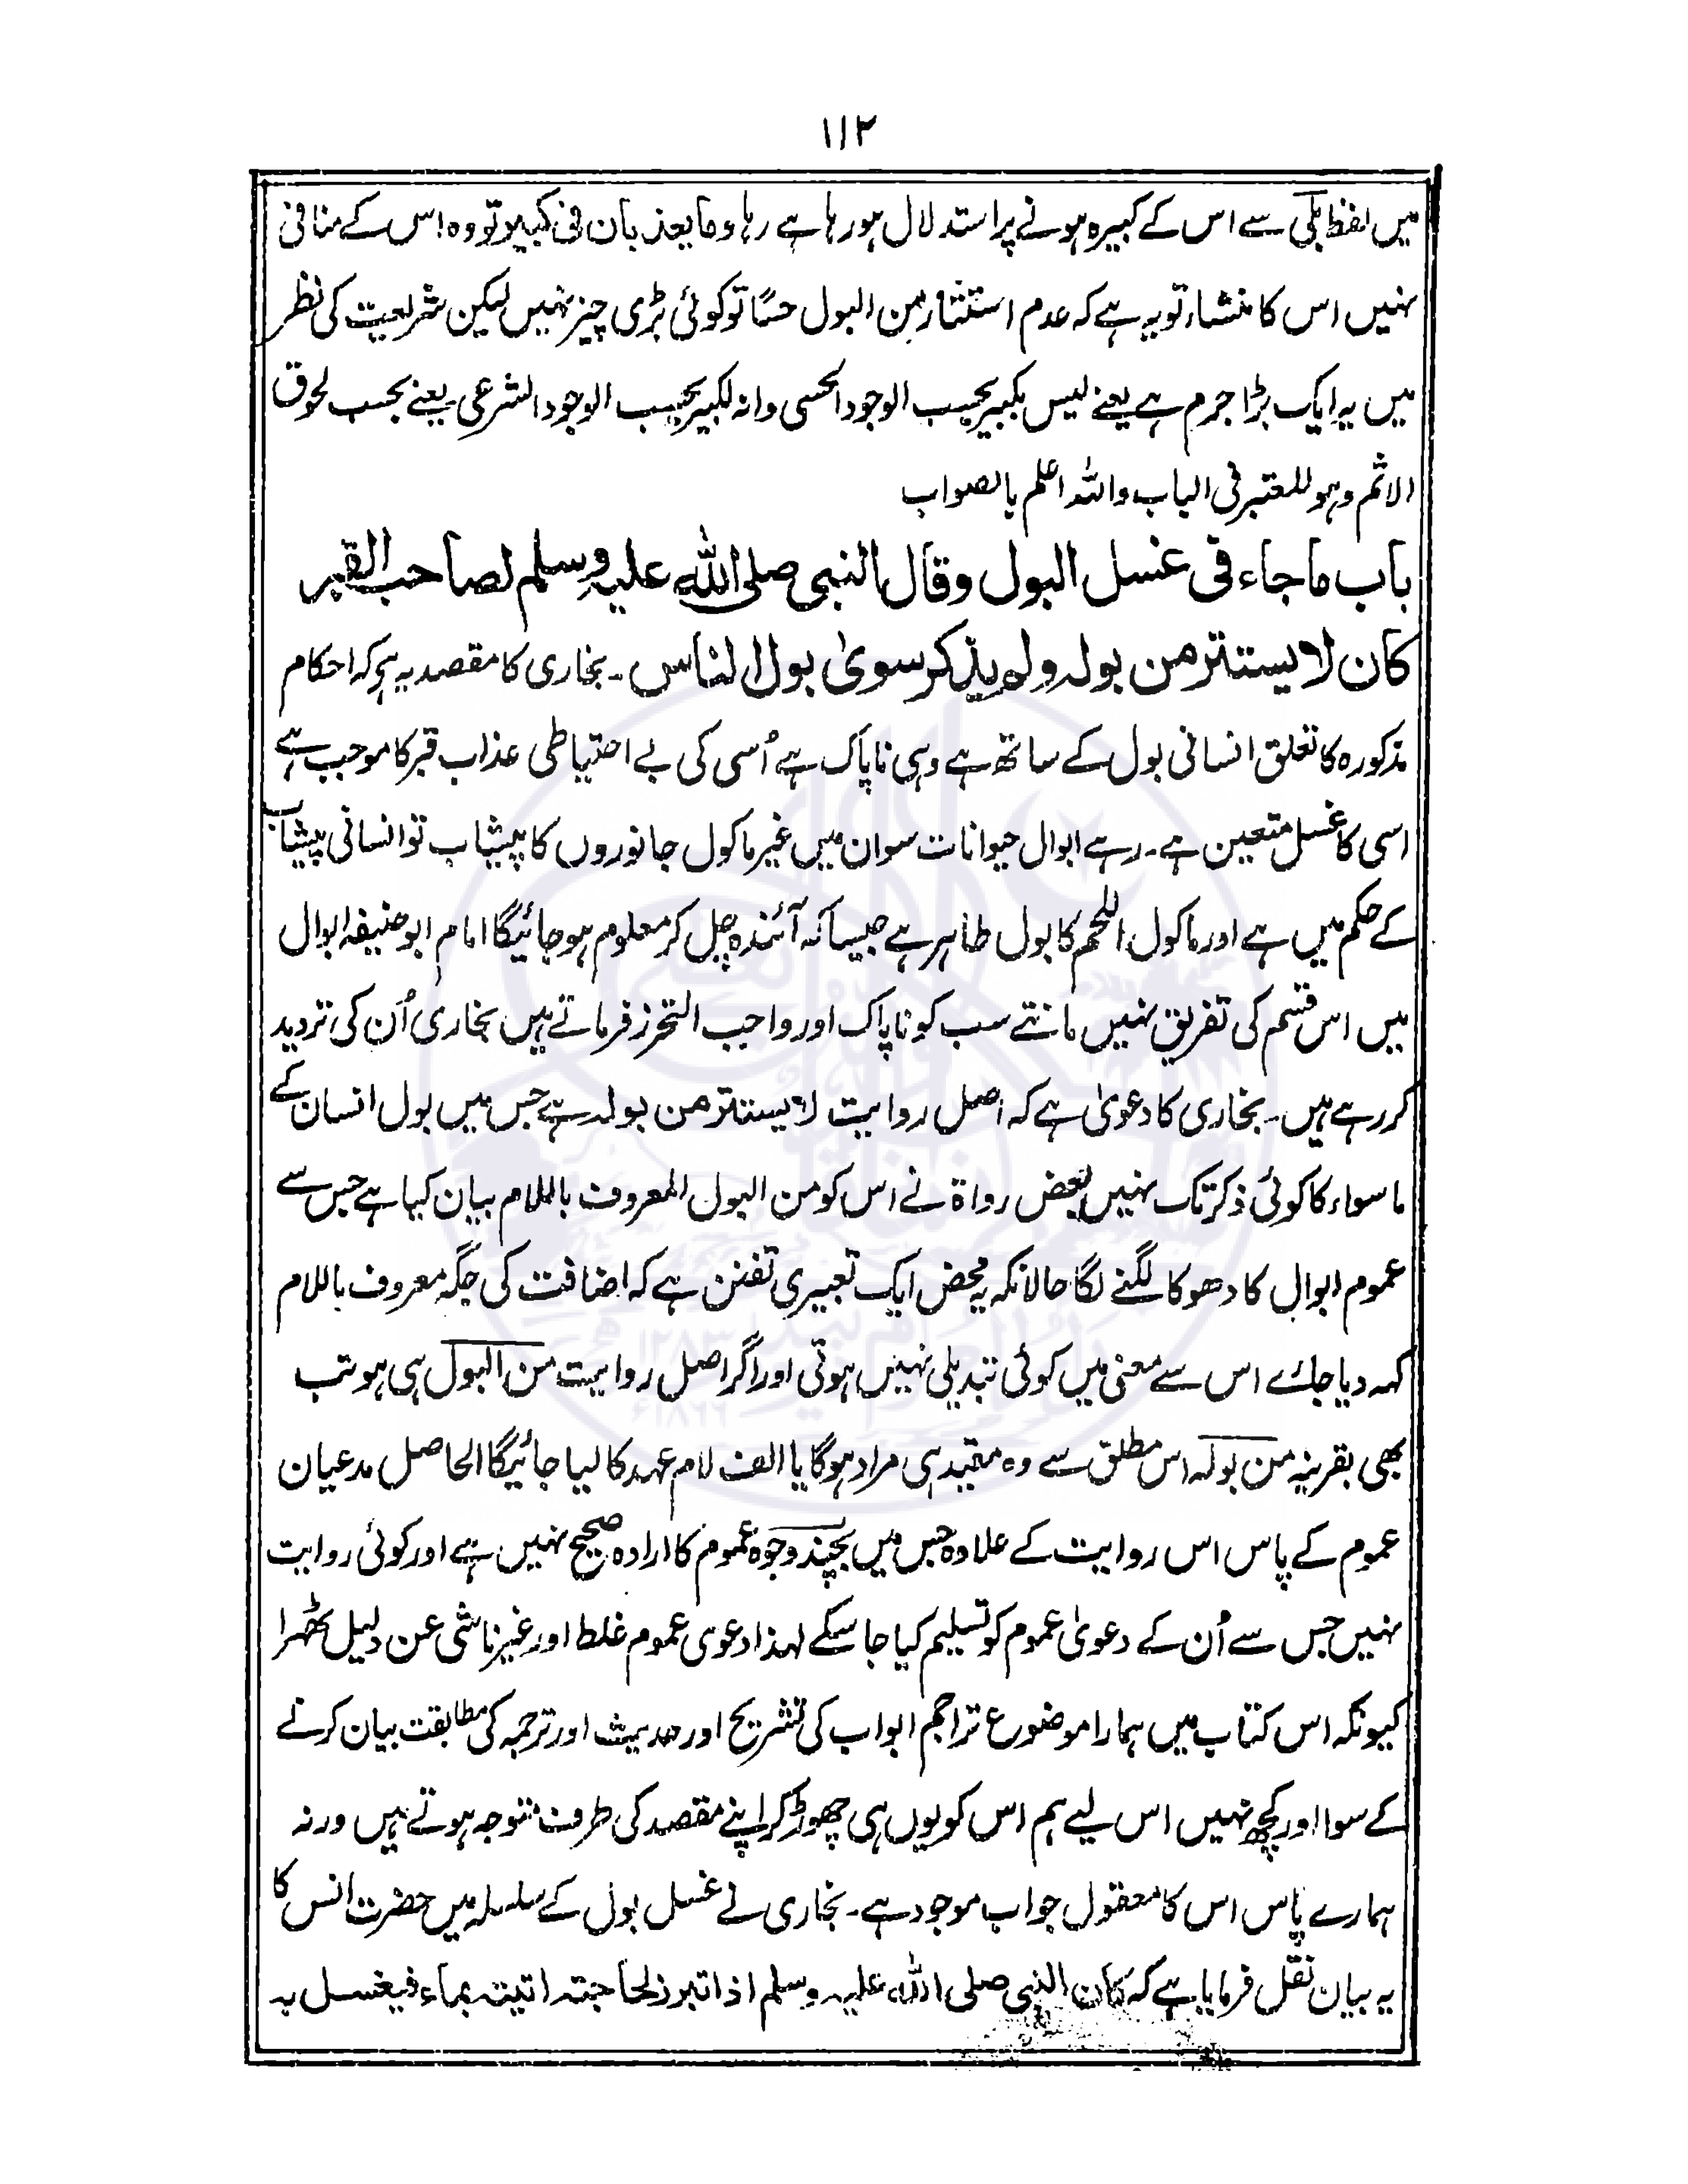 ۱۱۲
میں لفظ بلیٰ سے اس کے کبیرہ ہونے پر استدلال ہورہا ہے رہا وما یعذبان فی کبیر تو وہ اس کے منافی
نہیں اس کا منشاء تو یہ ہے کہ عدم استتار من البول حسًّا تو کوئی بڑی چیز نہیں لیکن شریعت کی نظر
میں یہ ایک بڑا جرم ہے یعنے لیس بکبیر بحسب الوجود الحسی وانہ لکبیر بحسب الوجود الشرعی یعنے بحسب لحوق
الاثم وہو المعتبر فی الباب واللہ اعلم بالصواب
باب ما جاء فی غسل البول وقال النبی صلی اللہ علیہ وسلم لصاحب القبر
کان لا یستتر من بولہ ولم یذکر سویٰ بول الناس ۔ بخاری کا مقصد یہ ہے کہ احکام
مذکورہ کا تعلق انسانی بول کے ساتھ ہے وہی ناپاک ہے اُسی کی بے احتیاطی عذاب قبر کا موجب ہے
اسی کا غسل متعین ہے ۔ رہے ابوال حیوانات سو ان میں غیر ماکول جانوروں کا پیشاب تو انسانی پیشاب
کے حکم میں ہے اور ماکول اللحم کا بول طاہر ہے جیسا کہ آئندہ چل کر معلوم ہوجائیگا امام ابوحنیفہ ابوال
میں اس قسم کی تفریق نہیں مانتے سب کو ناپاک اور واجب التحرز فرماتے ہیں بخاری اُن کی تردید
کررہے ہیں ۔ بخاری کا دعویٰ ہے کہ اصل روایت لا یستتر من بولہ ہے جس میں بول انسان کے
ماسواء کا کوئی ذکر تک نہیں بعض رواۃ نے اس کو من البول المعروف باللام بیان کیا ہے جس سے
عموم ابوال کا دھوکا لگنے لگا حالانکہ یہ محض ایک تعبیری تفنن ہے کہ اضافت کی جگہ معروف باللام
کہہ دیا جائے اس سے معنی میں کوئی تبدیلی نہیں ہوتی اور اگر اصل روایت من البول ہی ہو تب
بھی بقرینہ من بولہ اس مطلق سے وہ مقید ہی مراد ہوگا یا الف لام عہد کا لیا جائیگا الحاصل مدعیان
عموم کے پاس اس روایت کے علاوہ جس میں بچند وجوہ عموم کا ارادہ صحیح نہیں ہے اور کوئی روایت
نہیں جس سے اُن کے دعویٰ عموم کو تسلیم کیا جاسکے لہذا دعوی عموم غلط اور غیر ناشی عن دلیل ٹھہرا
کیونکہ اس کتاب میں ہمارا موضوع تراجم ابواب کی تشریح اور حدیث اور ترجمہ کی مطابقت بیان کرنے
کے سوا اور کچھ نہیں اس لیے ہم اس کو یوں ہی چھوڑ کر اپنے مقصد کی طرف متوجہ ہوتے ہیں ورنہ
ہمارے پاس اس کا معقول جواب موجود ہے ۔ بخاری نے غسل بول کے سلسلہ میں حضرت انس کا
یہ بیان نقل فرمایا ہے کہ کان النبی صلی اللہ علیہ وسلم اذا تبرز لحاجتہ اتیتہ بماء فیغسل بہ